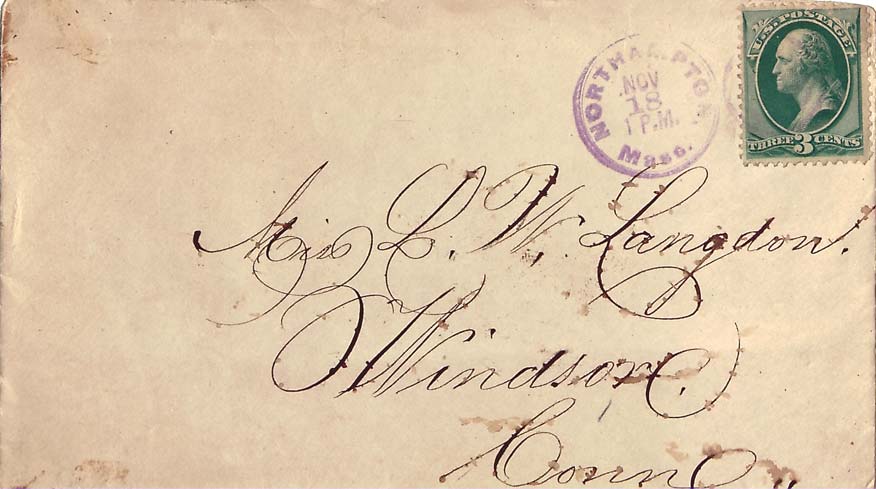 NORTHAMPTON
NOV
18
1 P.M.
Mass.
U.S. POSTAGE
THREE 3 CENTS
Miss L. W. Langdon.
Windsor.
Conn